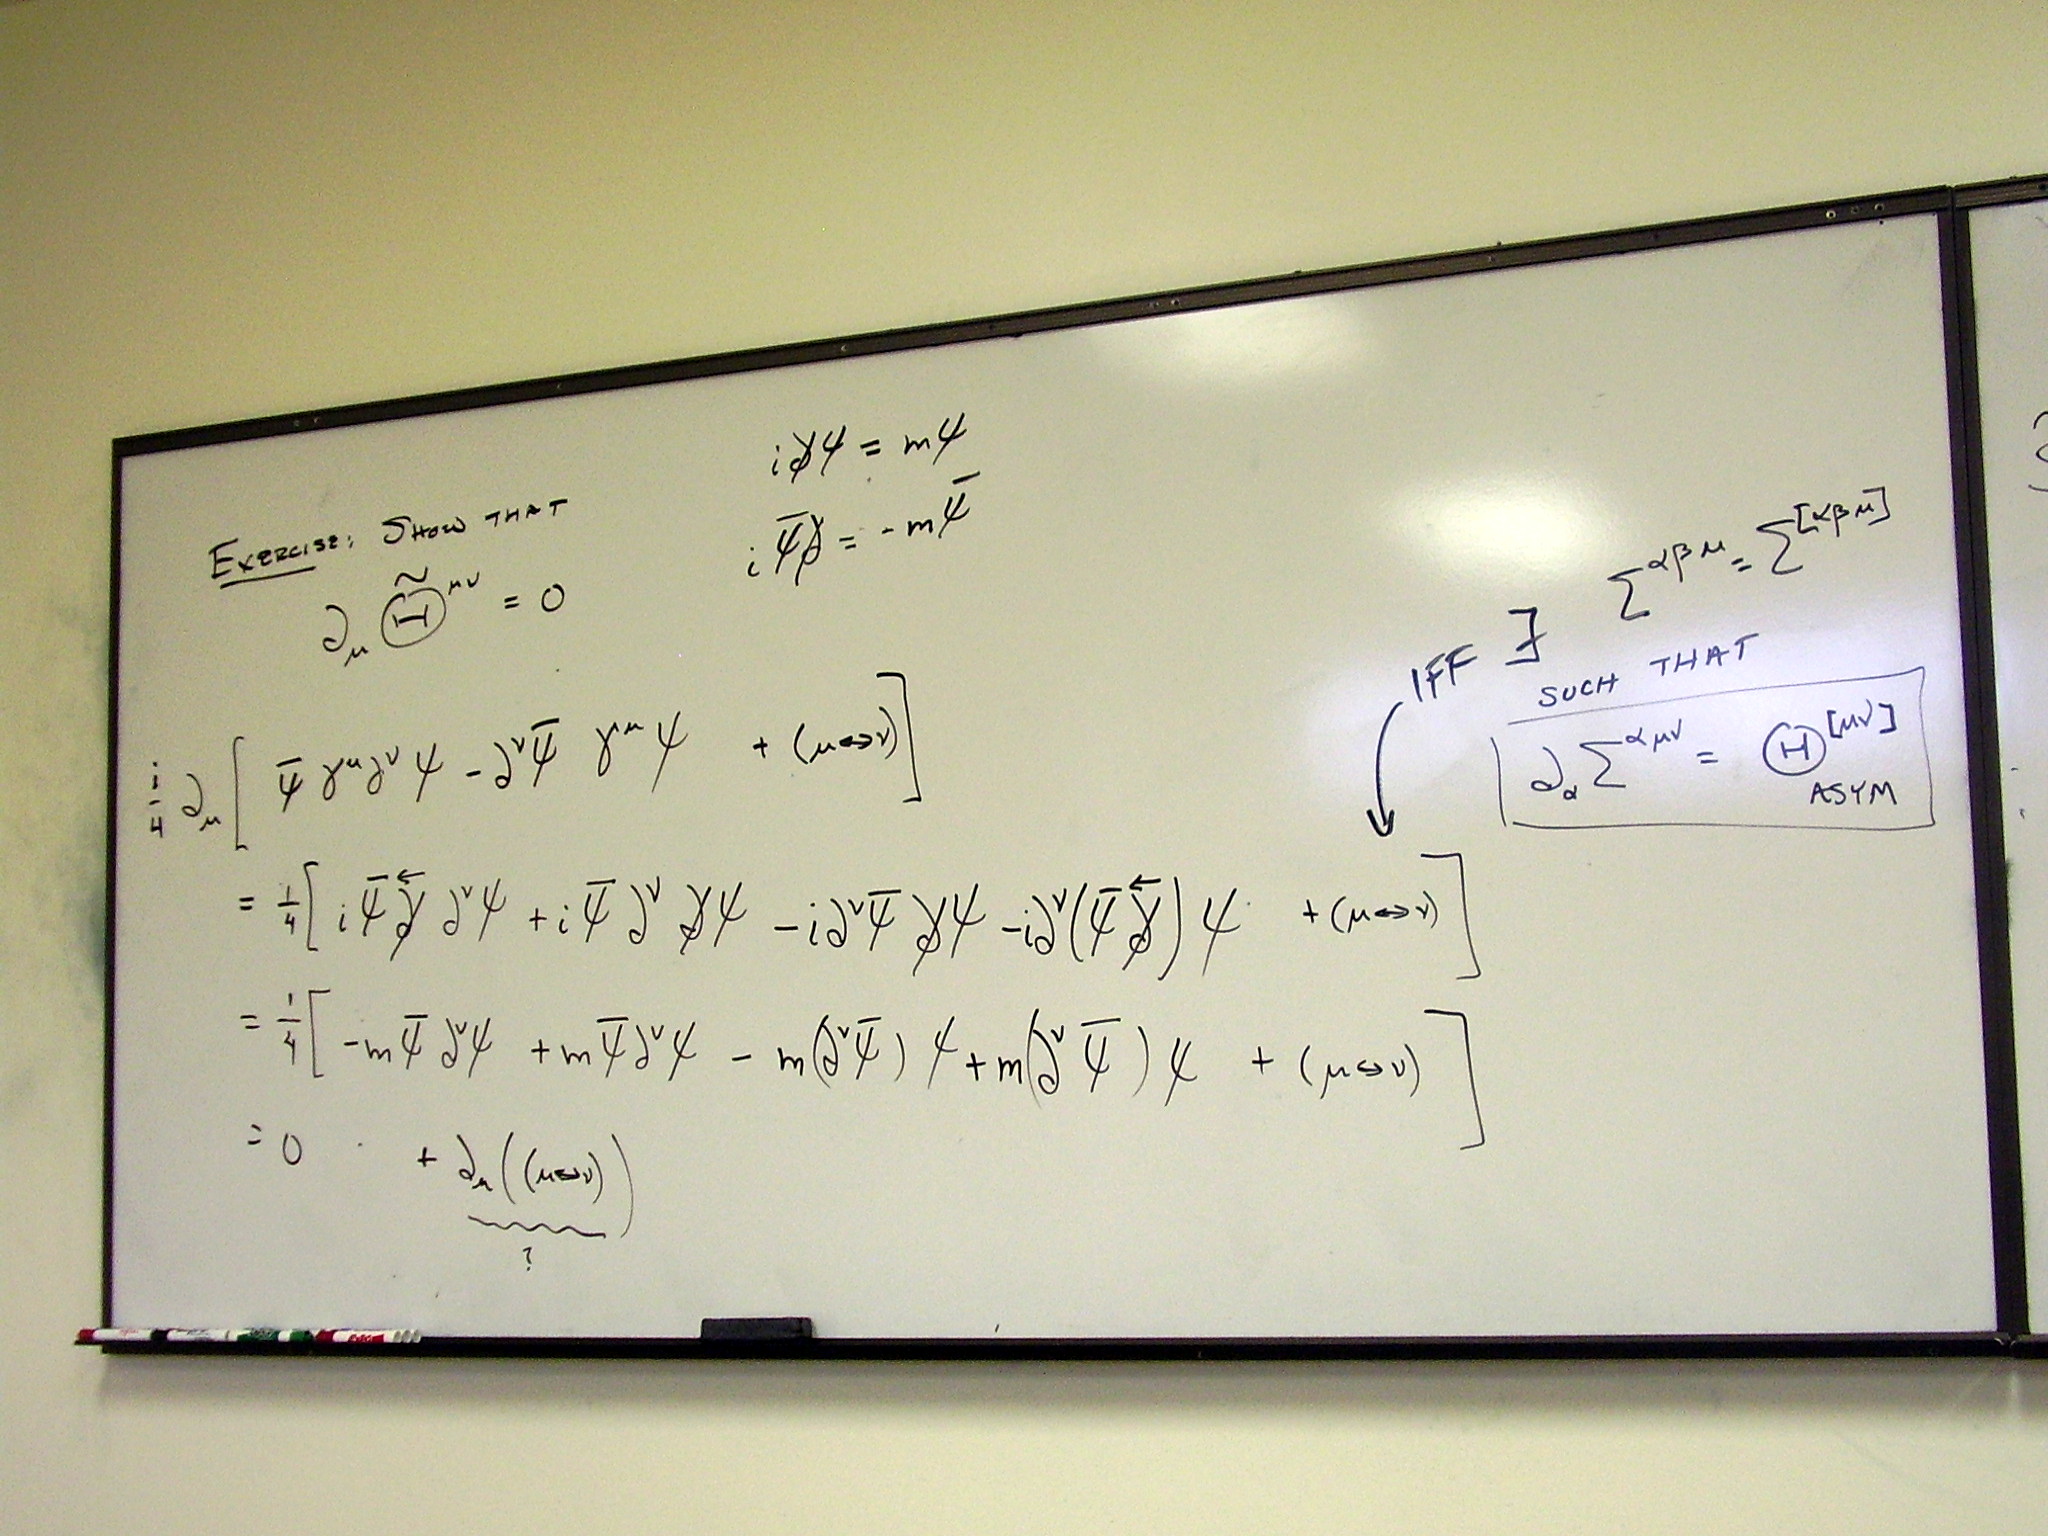 i∂̸ψ = mψ
EXERCISE: SHOW THAT
i ψ̄∂̸ = -mψ̄
∂_μ Θ̃^{μν} = 0
IFF ∃ Σ^{αβμ} = Σ^{[αβμ]}
SUCH THAT
∂_α Σ^{αμν} = Θ^{[μν]}
ASYM
i/4 ∂_μ [ ψ̄ γ^μ ∂^ν ψ - ∂^ν ψ̄ γ^μ ψ + (μ↔ν) ]
= 1/4 [ i ψ̄ ∂̸← ∂^ν ψ + i ψ̄ ∂^ν ∂̸ψ - i∂^ν ψ̄ ∂̸ψ - i∂^ν (ψ̄ ∂̸←) ψ + (μ↔ν) ]
= 1/4 [ -m ψ̄ ∂^ν ψ + m ψ̄ ∂^ν ψ - m(∂^ν ψ̄) ψ + m(∂^ν ψ̄) ψ + (μ↔ν) ]
= 0 + ∂_μ ( (μ↔ν) )
?